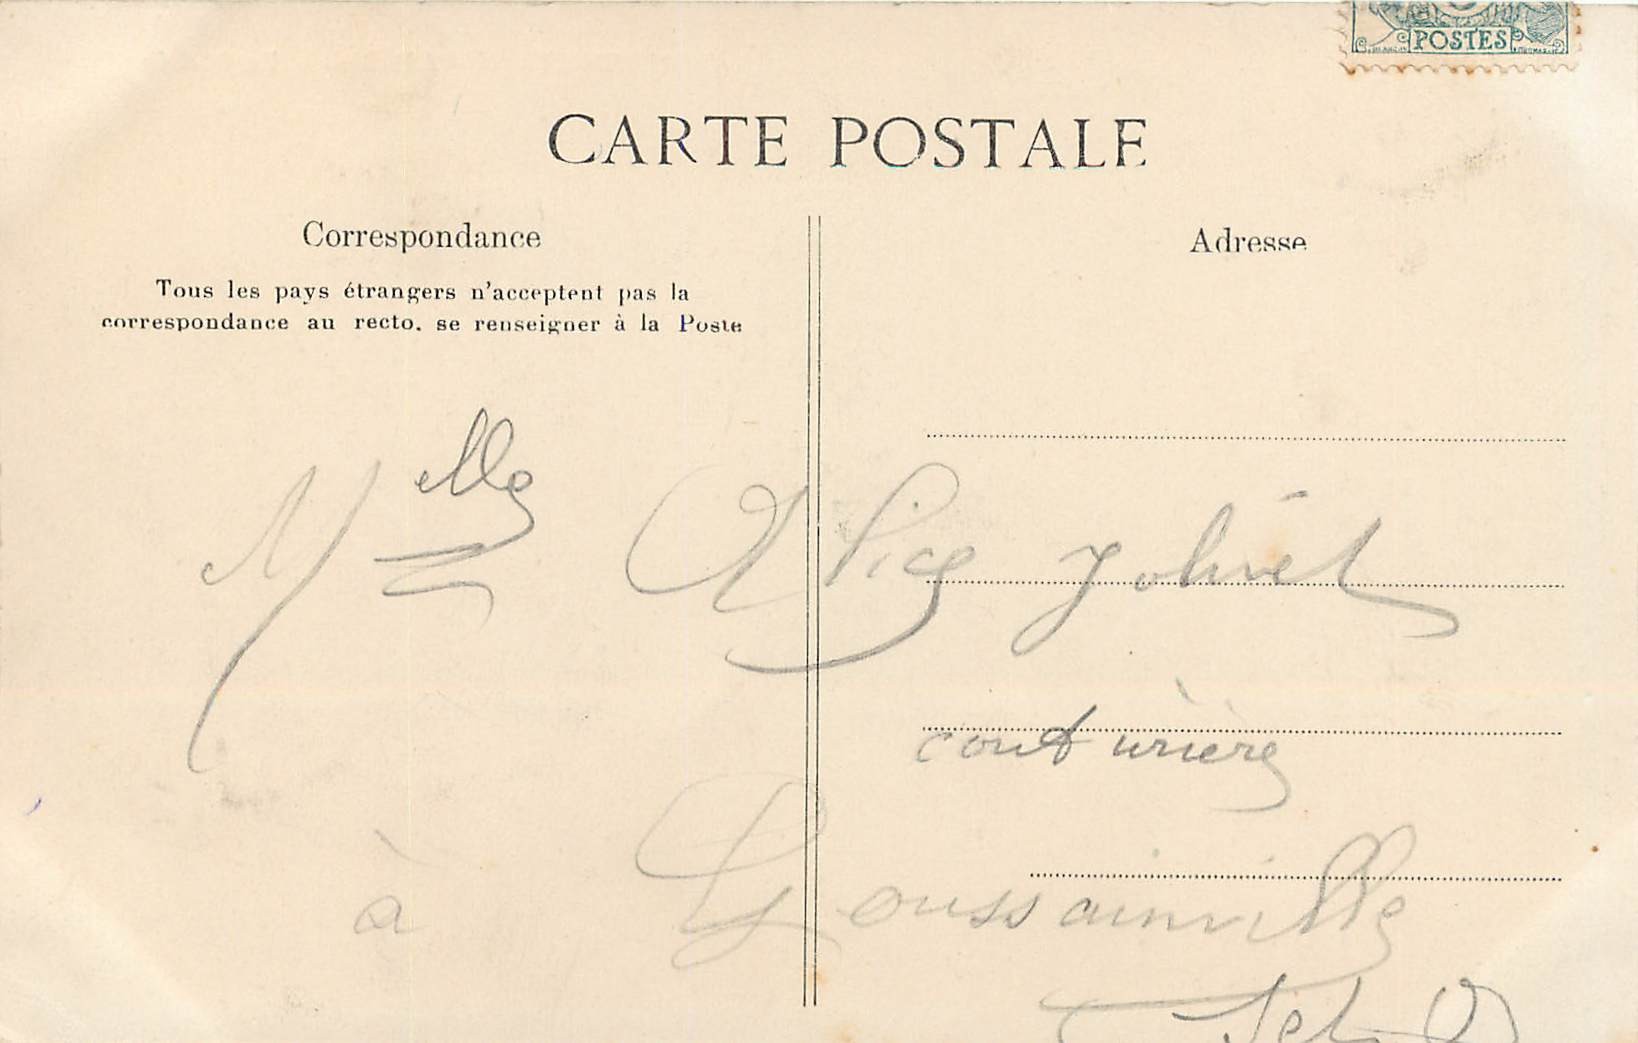 POSTES
CARTE POSTALE
Correspondance
Adresse
Tous les pays étrangers n'acceptent pas la
correspondance au recto. se renseigner à la Poste
Melle Alice Jolivet
couturière
à Goussainville
Set